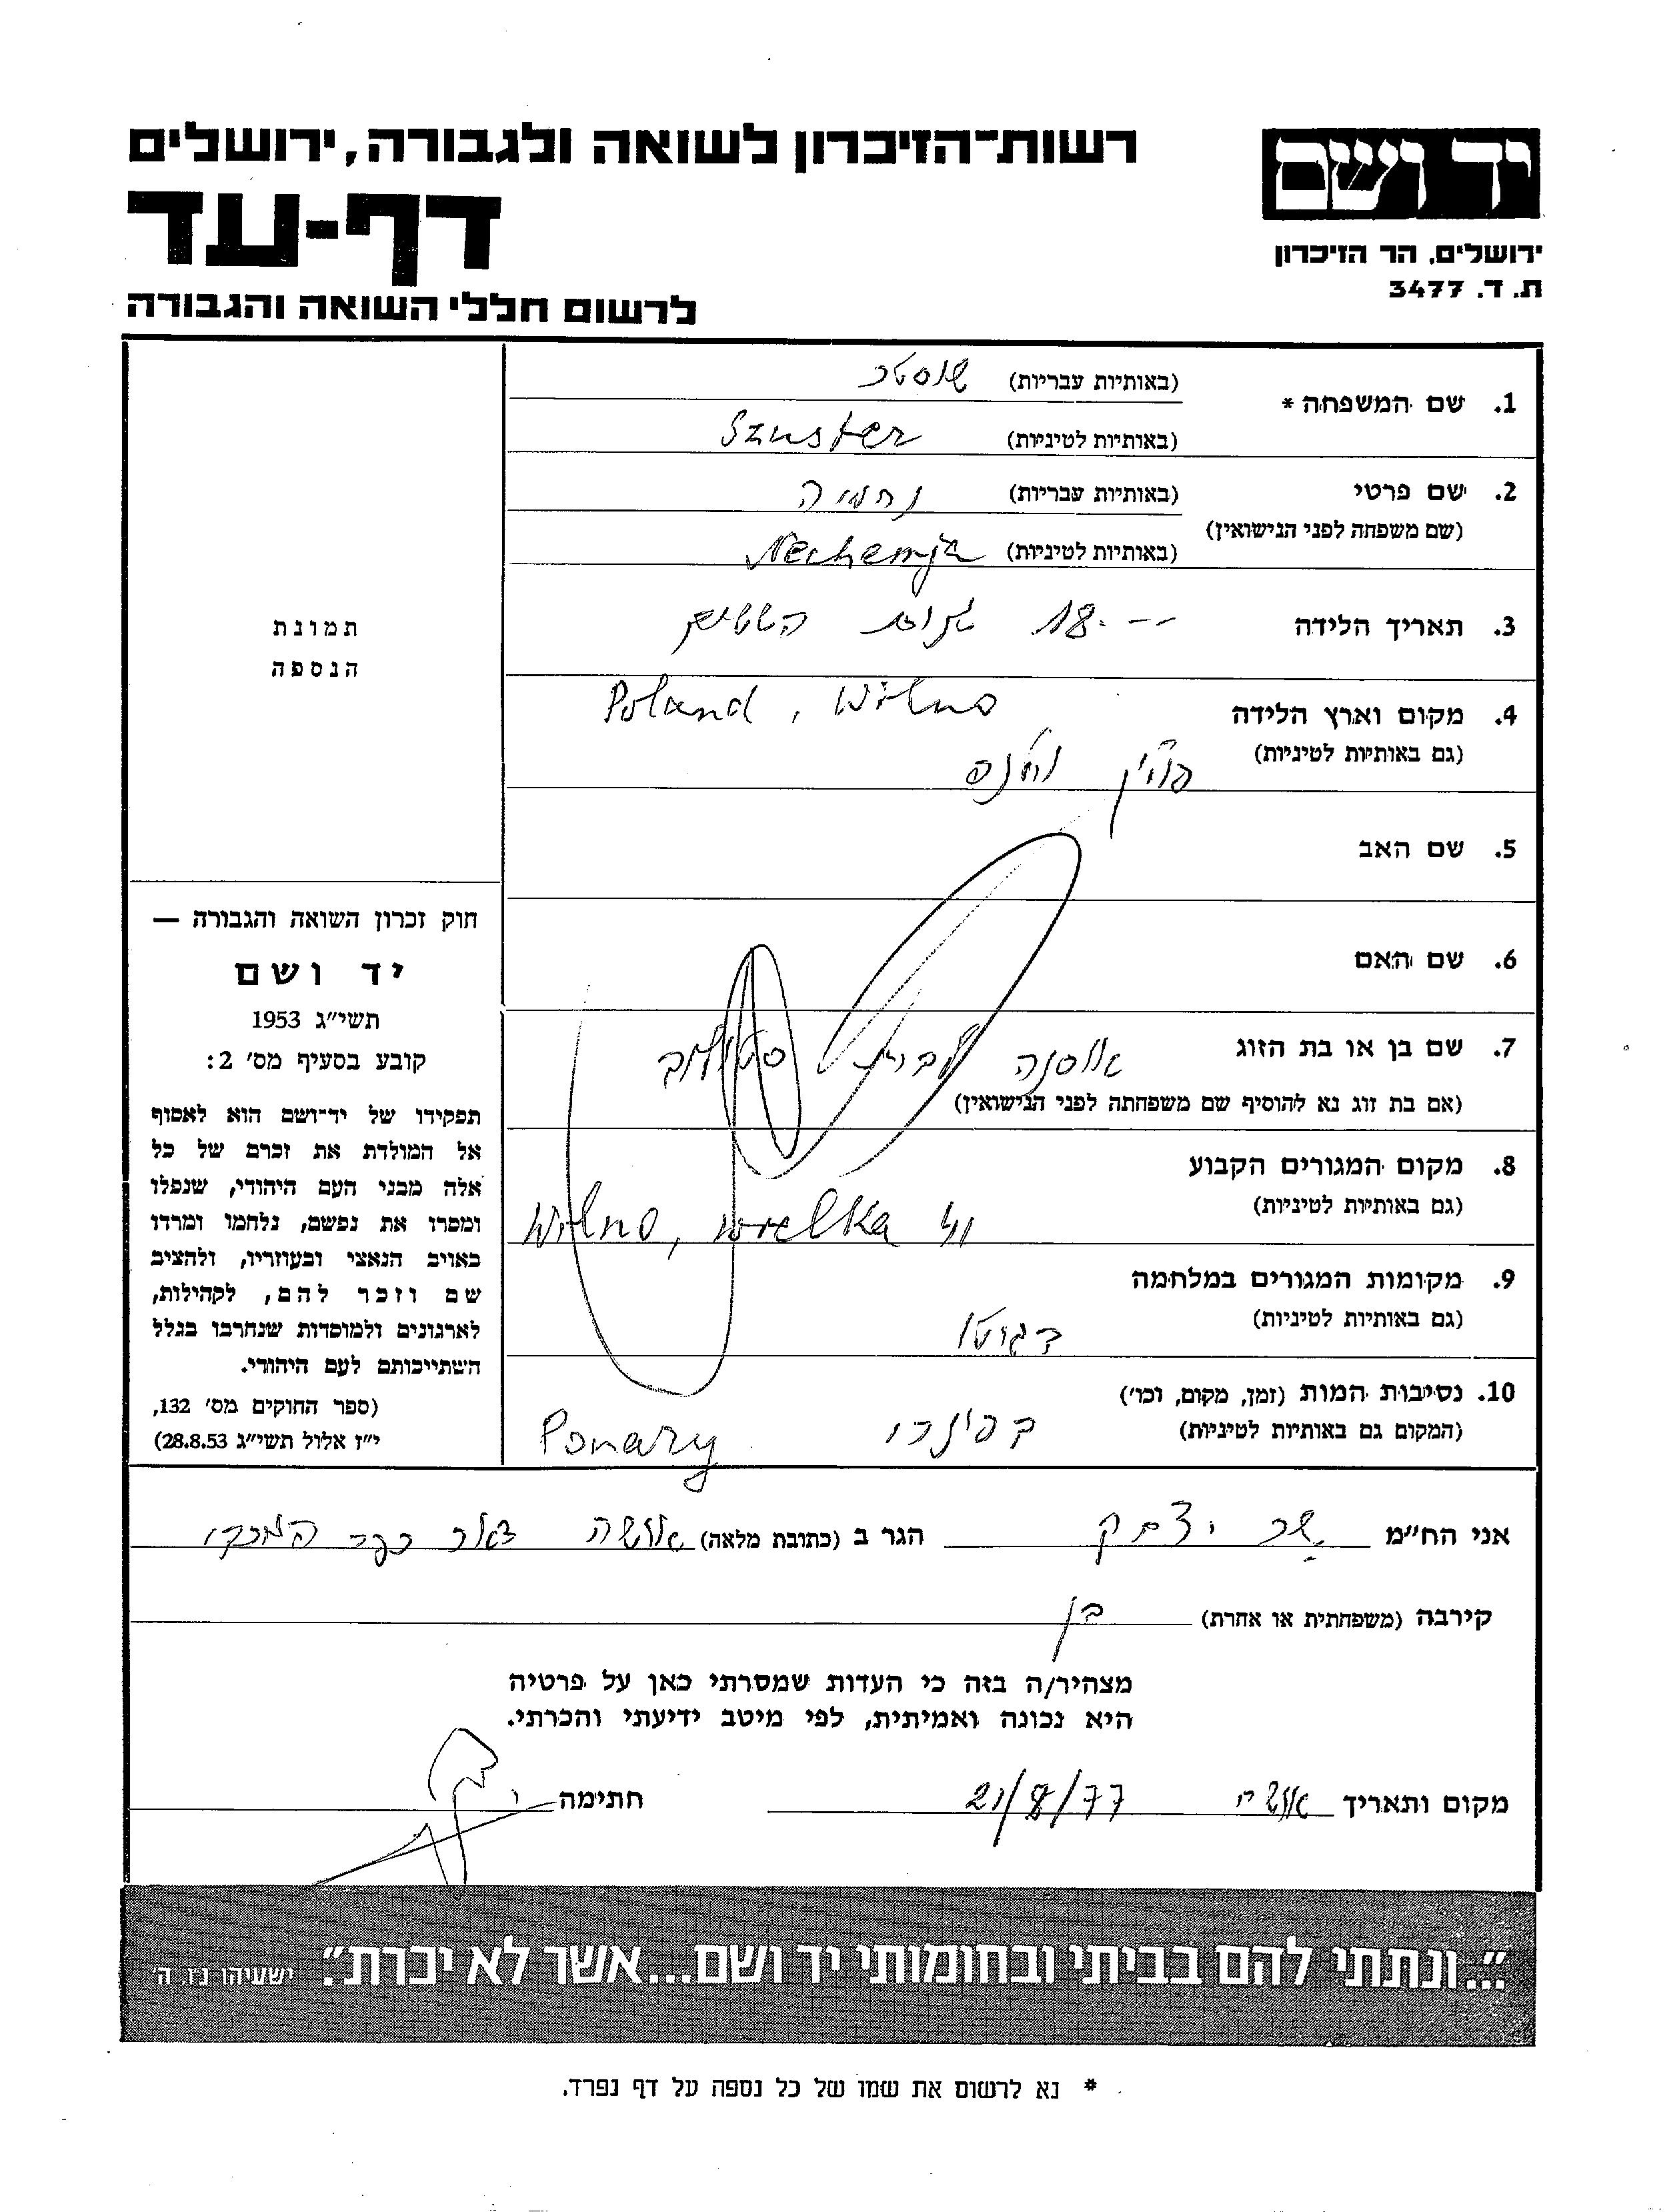 רשות־הזיכרון לשואה ולגבורה, ירושלים
דף-עד
לרשום חללי השואה והגבורה
יד ושם
ירושלים, הר הזיכרון
ת. ד. 3477
1. שם המשפחה * (באותיות עבריות) שוסטר
(באותיות לטיניות) Szuster
2. שם פרטי (באותיות עבריות) נחמיה
(שם משפחה לפני הנישואין)
(באותיות לטיניות) Nechemja
3. תאריך הלידה 18---
4. מקום וארץ הלידה Poland, Wilno
(גם באותיות לטיניות) פולין
5. שם האב
6. שם האם
7. שם בן או בת הזוג
(אם בת זוג נא להוסיף שם משפחתה לפני הנישואין)
8. מקום המגורים הקבוע
(גם באותיות לטיניות)
Wilno, wielka 41
9. מקומות המגורים במלחמה
(גם באותיות לטיניות)
בגיטו
10. נסיבות המות (זמן, מקום, וכו')
(המקום גם באותיות לטיניות)
Ponary
תמונת
הנספה
חוק זכרון השואה והגבורה —
יד ושם
תשי״ג 1953
קובע בסעיף מס׳ 2:
תפקידו של יד־ושם הוא לאסוף
אל המולדת את זכרם של כל
אלה מבני העם היהודי, שנפלו
ומסרו את נפשם, נלחמו ומרדו
באויב הנאצי ובעוזריו, ולהציב
שם וזכר להם, לקהילות,
לארגונים ולמוסדות שנחרבו בגלל
השתייכותם לעם היהודי.
(ספר החוקים מס׳ 132,
י״ז אלול תשי״ג 28.8.53)
אני הח״מ שר יצחק הגר ב (כתובת מלאה) אושה דואר כפר המכבי
קירבה (משפחתית או אחרת) בן
מצהיר/ה בזה כי העדות שמסרתי כאן על פרטיה
היא נכונה ואמיתית, לפי מיטב ידיעתי והכרתי.
מקום ותאריך אושה 21/8/77 חתימה
״...ונתתי להם בביתי ובחומותי יד ושם...אשר לא יכרת״. ישעיהו נ״ו, ה׳
* נא לרשום את שמו של כל נספה על דף נפרד.